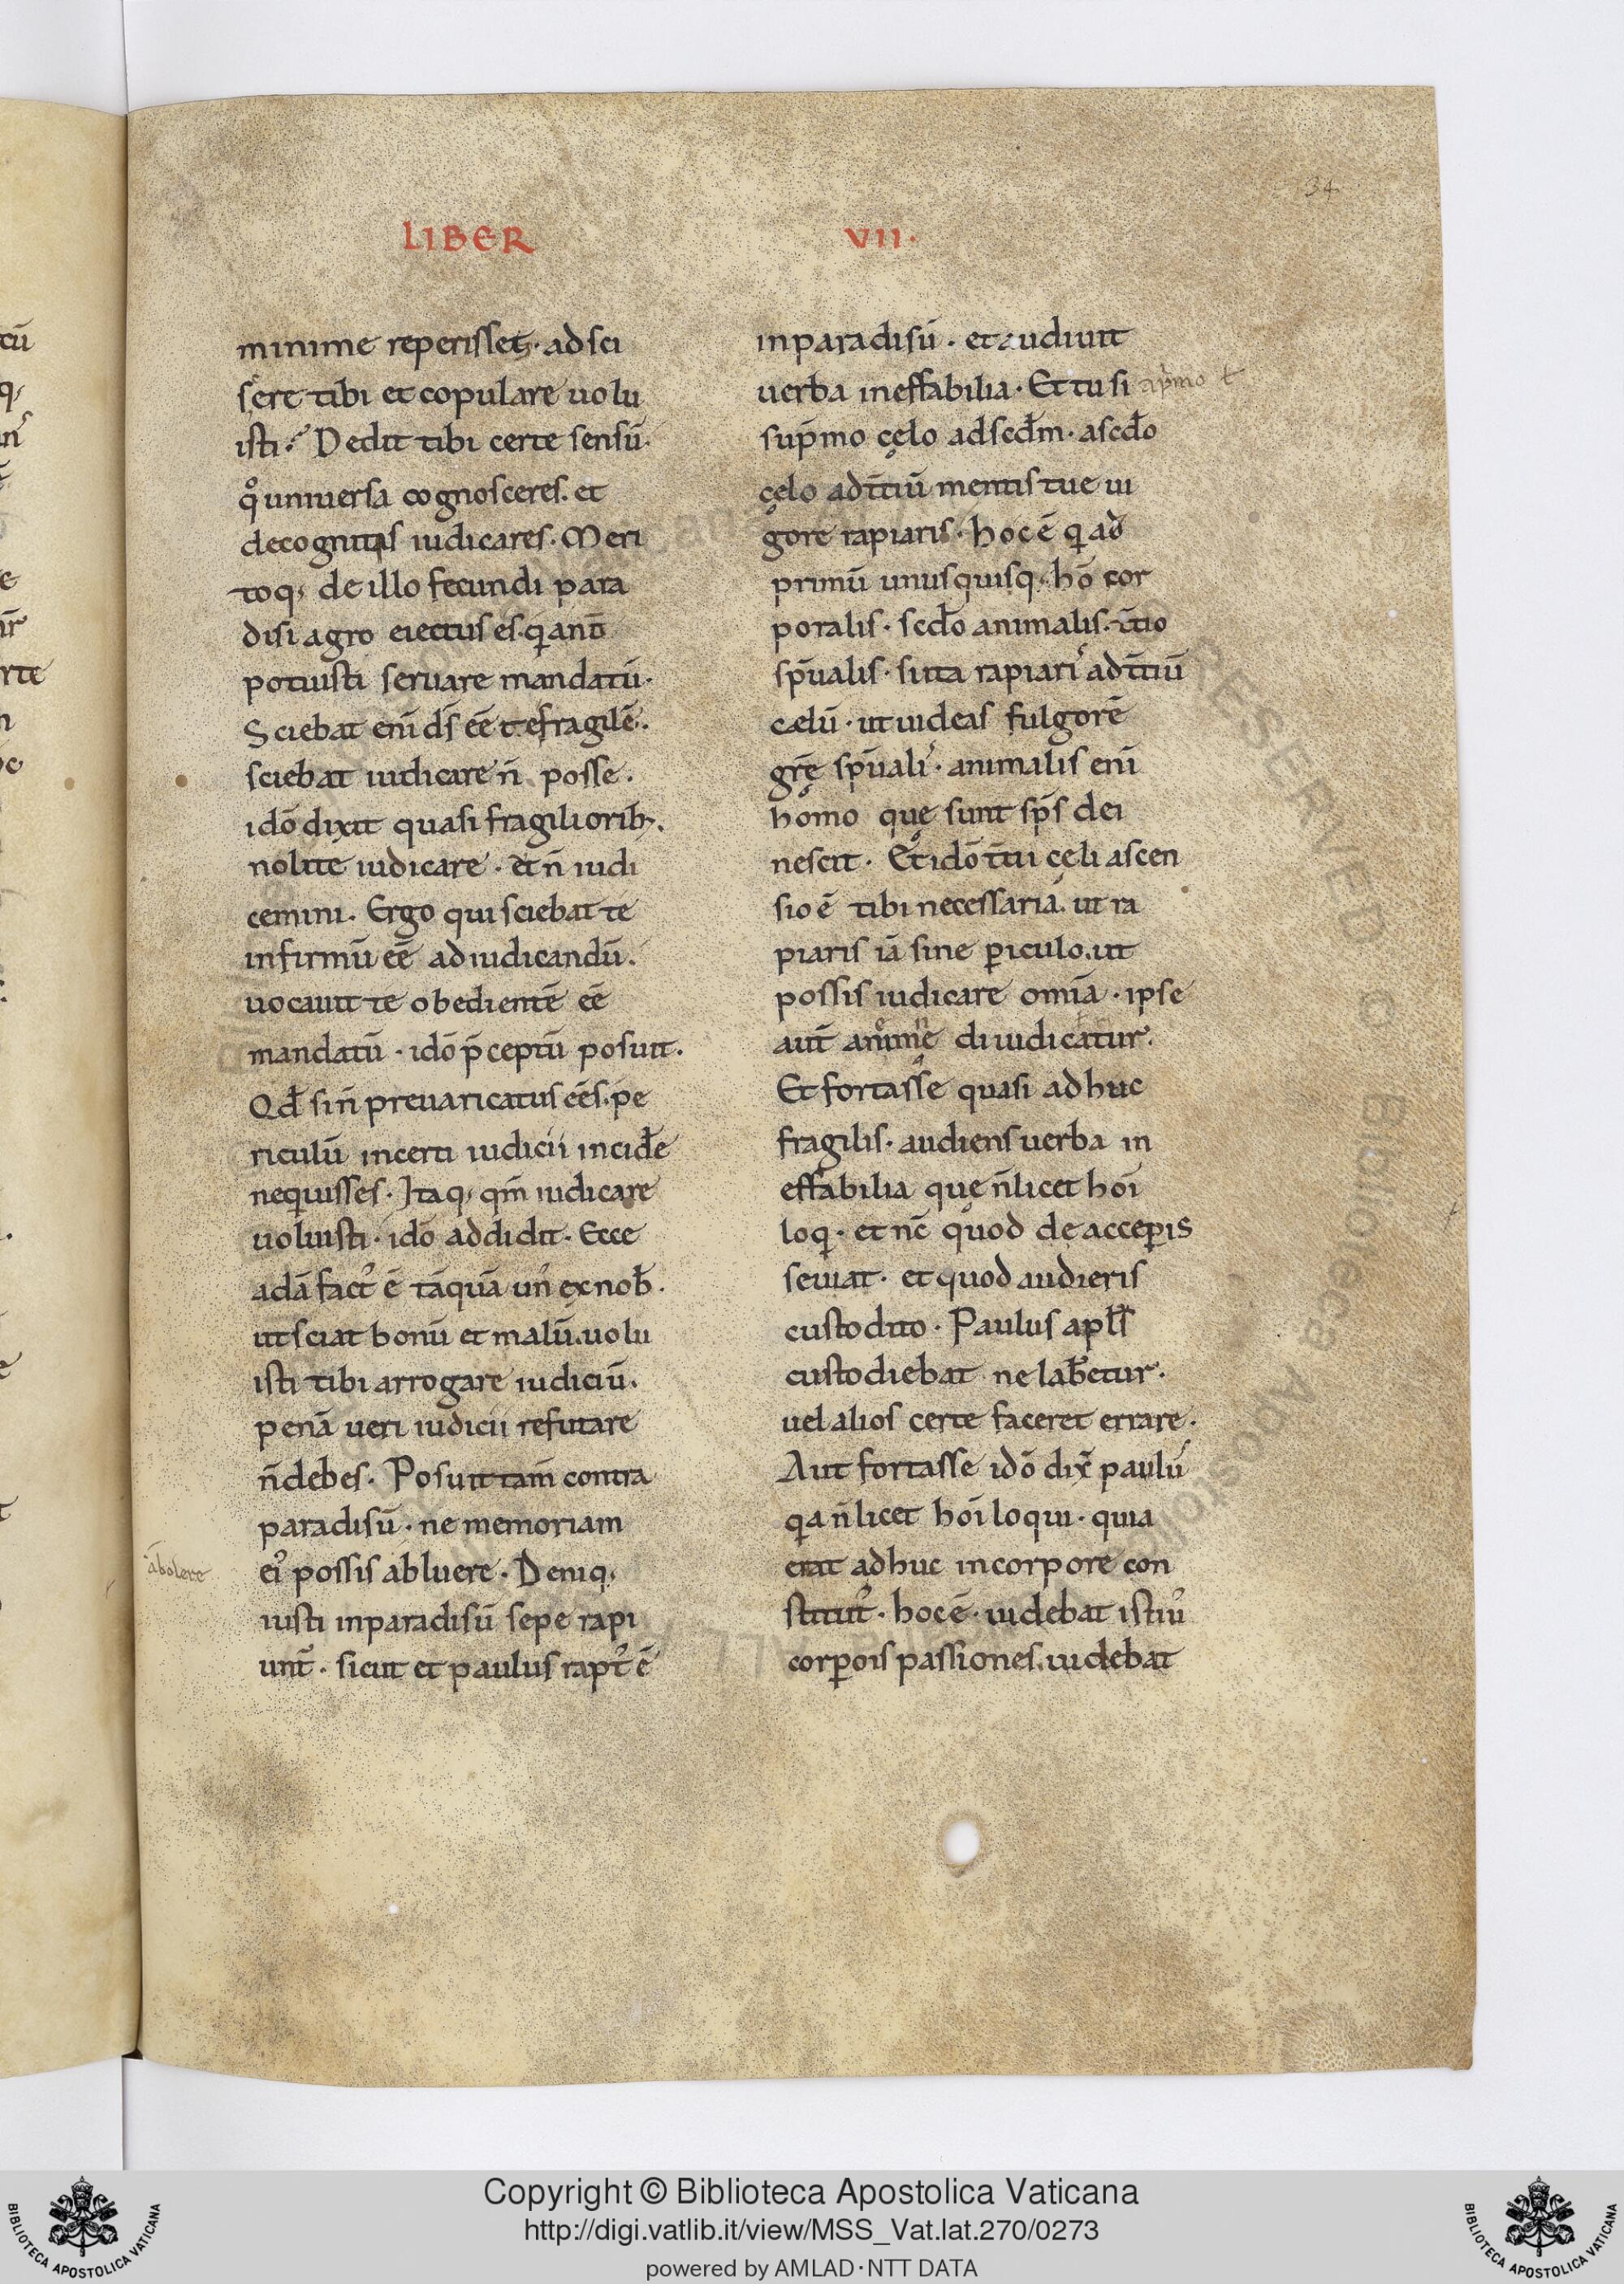 34
LIBER VII·
minime reperisset· adsci
scere tibi et copulare uolu
isti? Dedit tibi certe sensū·
qͦ uniuersa cognosceres. et
decognitis iudicares. Meri
toq; de illo fecundi para
disi agro eiectus es. q̄a nō
potuisti seruare mandatū·
Sciebat enī dſ̄ eē te fragilē·
sciebat iudicare n̄ posse.
idō dixit quasi fragiliorib;.
nolite iudicare· et n̄ iudi
cemini. Ergo qui sciebat te
infirmū eē ad iudicandū.
uocauit te obedientē eē
mandatū· idō p̄ceptū posuit.
Qđ si n̄ preuaricatus eēs. pe
riculū incerti iudicii incidr̄e
nequisses. Itaq; qm̄ iudicare
uoluisti· idō addidit. Ecce
adā fact᾽ ē tāquā un᾽ ex nob̄.
ut sciat bonū et malū. uolu
isti tibi arrogare iudiciū.
penā ueri iudicii refutare
n̄ debes. Posuit tam̄ contra
paradisū· ne memoriam
abolere
ei᾽ possis abluere. Deniq;
iusti inparadisū sepe rapi
unt᷑. sicut et paulus rapt᾽ ē
inparadisū· et audiuit
uerba ineffabilia· Et tu si
sup̄mo cęlo adscdm̄· a scdō
cęlo ad t̄tiū mentis tue ui
gore rapiaris· hoc ē q̄a ad
primū unusquisq; hō cor
poralis· scdō animalis· t̄tio
sp̄ualis· si ita rapiaris ad t̄tiū
cælū· ut uideas fulgorē
gr̄ę sp̄ualis· animalis enī
homo quę sunt sp̄s dei
nescit. Et idō t̄tii cęli ascen
sio ē tibi necessaria. ut ra
piaris iā sine ꝑiculo. ut
possis iudicare om̄ia· ipse
aut̄ a nemine diiudicatur.
Et fortasse quasi adhuc
fragilis· audiens uerba in
effabilia quę n̄ licet hōi
loq̄· et nc̄ quod de acceꝑis
seruat· et quod audieris
custodito· Paulus apls̄
custodiebat ne lab̄etur·
uel alios certe faceret errare·
Aut fortasse idō dix̄ paulus
q̄a n̄ licet hōi loqui· quia
erat adhuc incorpore con
stitut᾽· hoc ē· uidebat isti᾽
corꝑois passiones. uidebat
Copyright © Biblioteca Apostolica Vaticana
http://digi.vatlib.it/view/MSS_Vat.lat.270/0273
powered by AMLAD·NTT DATA